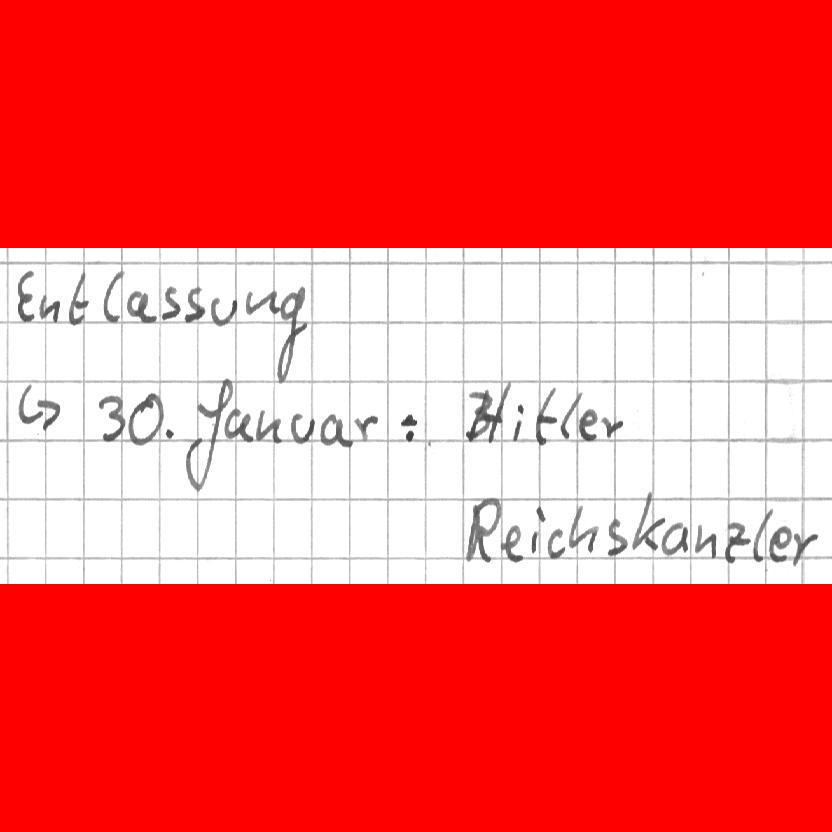 Entlassung
↳ 30. Januar : Hitler
Reichskanzler